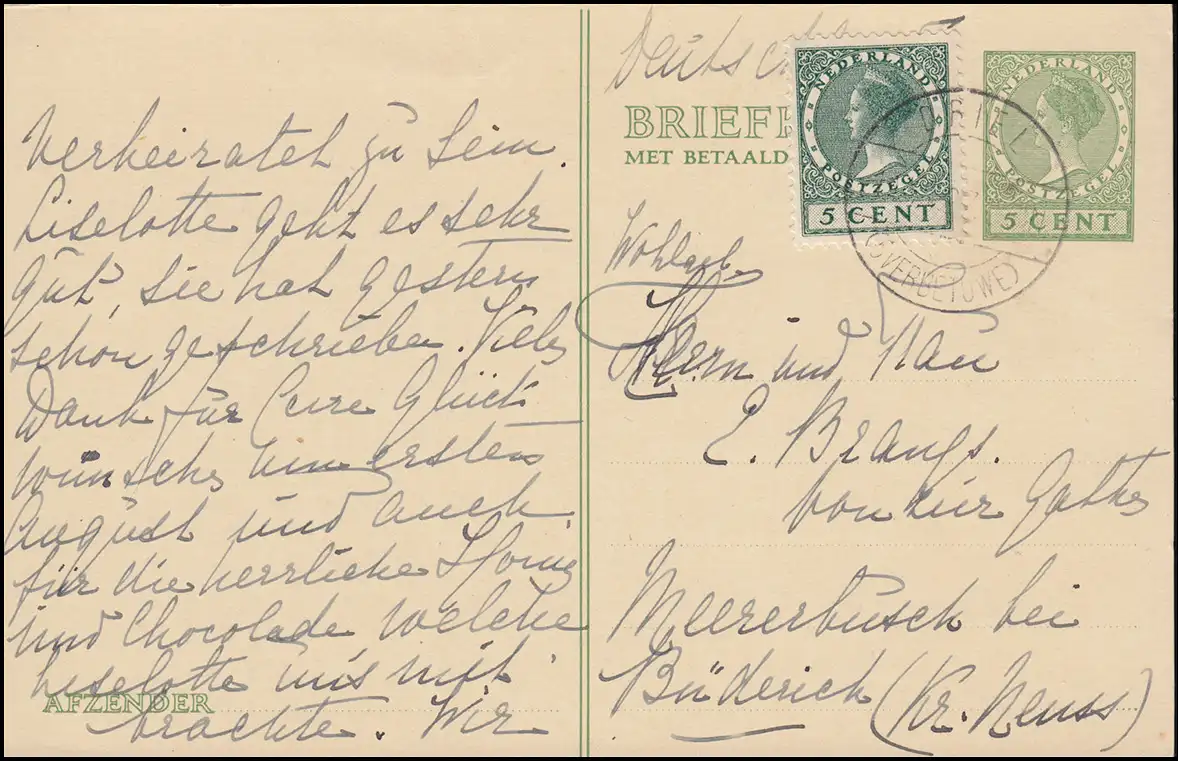 verheiratet zu sein.
Liselotte geht es sehr
gut, sie hat gestern
schon geschrieben. Vielen
Dank für Eure Glück
wünsche zum ersten
August und auch
für die herrliche
und Chocolade welche
Liselotte uns mit
AFZENDER
brachte. Wir
BRIEFK
MET BETAALD
NEDERLAND
POSTZEGEL
5 CENT
NEDERLAND
POSTZEGEL
5 CENT
(OVERBETUWE)
Herrn und Frau
E. Brangs.
von zur Gathen
Meererbusch bei
Büderich (Kr. Neuss)